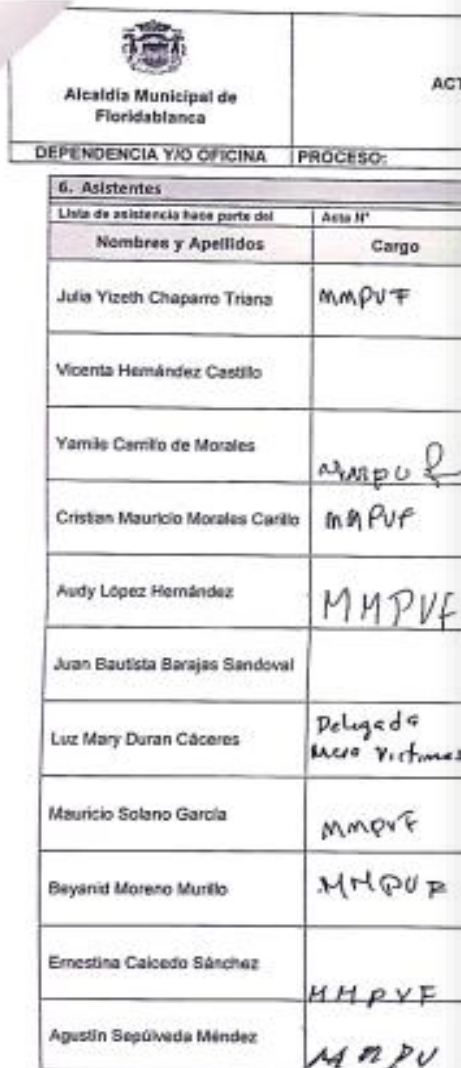 Alcaldía Municipal de
Floridablanca
ACT
DEPENDENCIA Y/O OFICINA PROCESO:
6. Asistentes
Lista de asistencia hace parte del Acta N°
Nombres y Apellidos Cargo
Julia Yizeth Chaparro Triana MMPVF
Vicenta Hernández Castillo
Yamile Carrillo de Morales
Cristian Mauricio Morales Carillo MMPVF
Audy López Hernández MMPVF
Juan Bautista Barajas Sandoval
Luz Mary Duran Cáceres Delegada
Mesa Victimas
Mauricio Solano García MMPVF
Beyanid Moreno Murillo MMPVF
Ernestina Caicedo Sánchez MMPVF
Agustín Sepúlveda Méndez MMPV